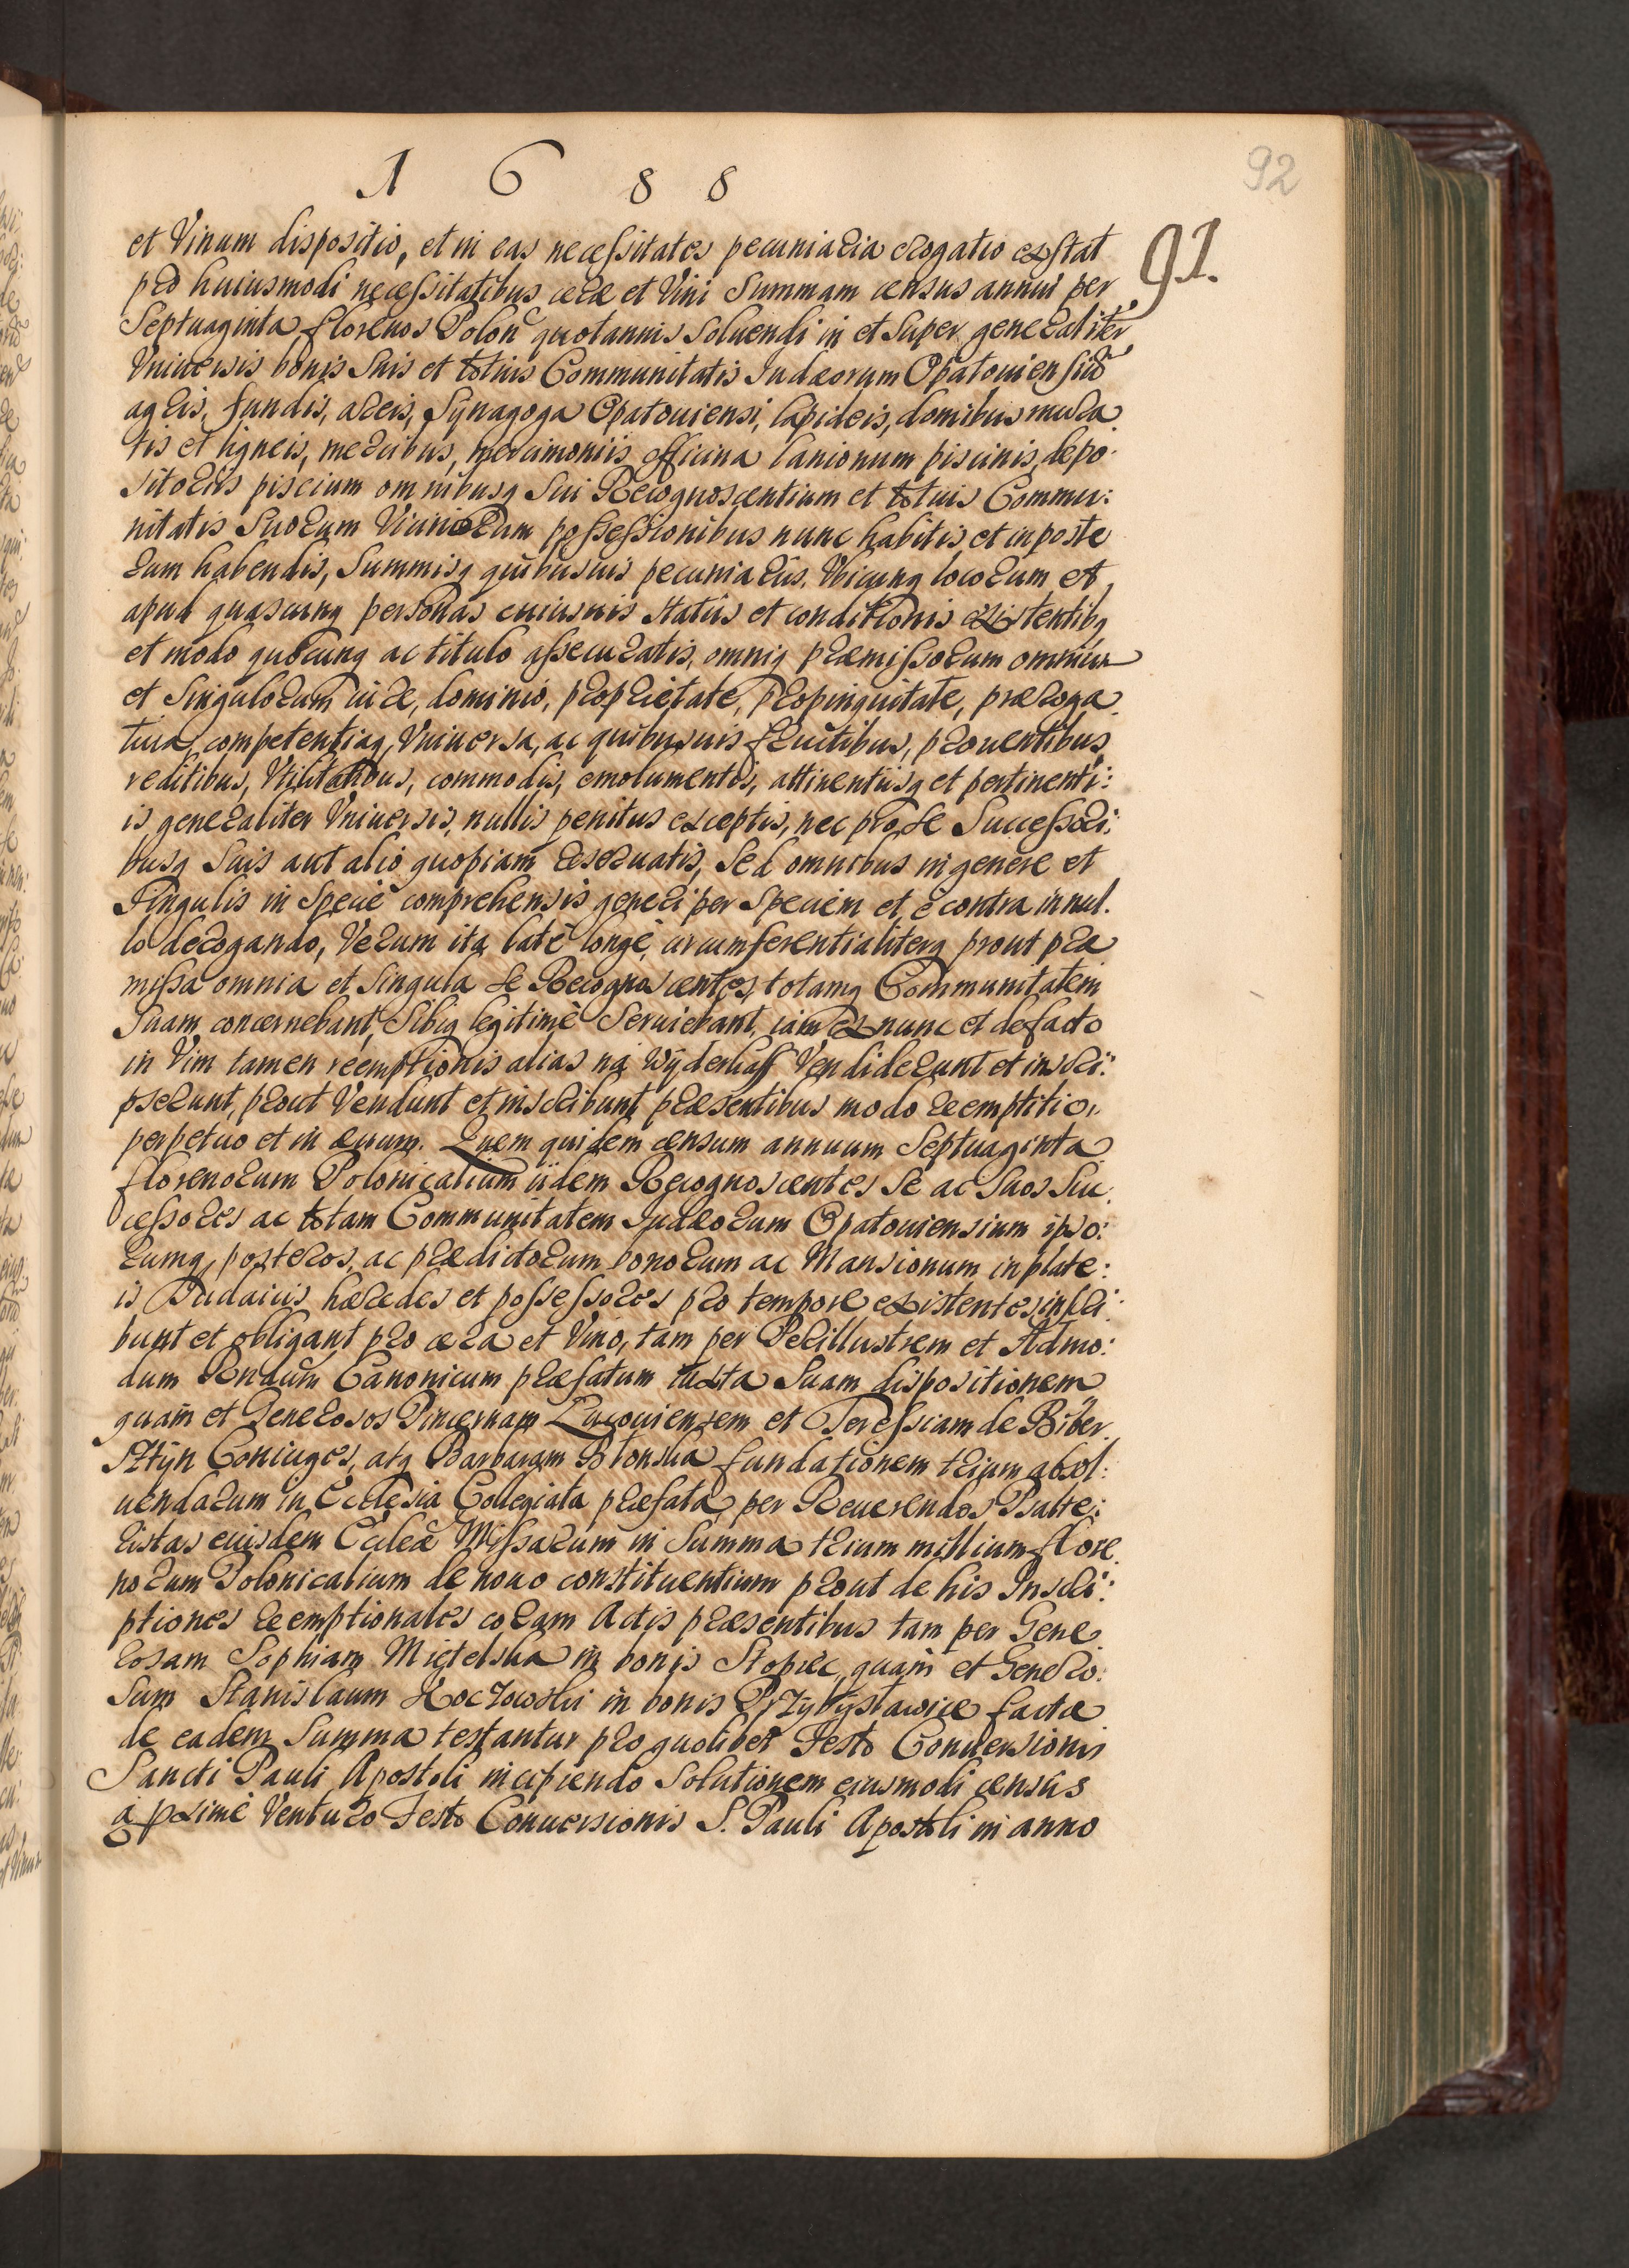 1688
92
91.
et Vinum dispositio, et in eas necessitates pecuniaria erogatio exstat
pro huiusmodi necessitatibus ceræ et Vini Summam census annui per
Septuaginta florenos Polon quotannis Soluendi in et Super generaliter
Vniuersis bonis Suis et totius Communitatis Judæorum Opatouiensiũ
agris, fundis, areis, Synagoga Opatouiensi, lapideis, domibus mura
tis et ligneis, mercibus, mercimoniis officina lanionum piscinis, depo-
sitoriis piscium omnibusq Sui Recognoscentium et totius Commu:
nitatis Suorum Vicinorum possessionibus nunc habitis et in poste
rum habendis, Summisq quibusuis pecuniariis. Vbicunq locorum et
apud quascunq personas cuiusuis Status et conditionis existentibq
et modo quocunq ac titulo assecuratis, omniq præmissorum omnium
et Singulorum iure, dominio, proprietate, propinquitate, præroga
tiua, competentiaq, Vniuersa, ac quibusuis fructibus, prouentibus,
reditibus, Vtilitatibus, commodis, emolumentis, attinentiisq et pertinenti:
is generaliter Vniuersis, nullis penitus exceptis, nec pro se Successori:
busq Suis aut alio quopiam reseruatis, Sed omnibus in genere et
Singulis in Specie comprehensis generi per Speciem et è contra in nul.
lo derogando, Verum ita latè longè, circumferentialiterq prout præ
missa omnia et Singula se Recognoscentes, totamq Communitatem
Suam concernebant, Sibiq legitimè Seruiebant, iam ex nunc et de facto
in Vim tamen reemptionis alias na wÿderkaff Vendiderunt et inscri:
pserunt, prout Vendunt et inscribunt præsentibus modo reemptitio,
perpetuo et in æuum. Quem quidem censum annuum Septuaginta
florenorum Polonicalium iidem Recognoscentes Se ac Suos Suc
cessores ac totam Communitatem Judæorum Opatouiensium ipso:
rumq posteros, ac prædictorum bonorum ac Mansionum in plate:
is Judaicis hæredes et possessores pro tempore existentes inscri
bunt et obligant pro cera et Vino, tam per Perillustrem et Admo:
dum Rndũm Canonicum præfatum iuxta Suam dispositionem
quam et Generosos Pincernam Lucouiensem et Teressiam de Biber
Sztÿn Coniuges, atq Barbaram Błonska fundationem trium absol:
uendarum in Ecclesia Collegiata præfata per Reuerendos Psalte:
ristas eiusdem Ecclea Missarum in Summa trium millium flore
norum Polonicalium de nouo constituentium prout de his Inscri:
ptiones reemptionales coram Actis præsentibus tam per Gene
rosam Sophiam Mietelska in bonis Stopiec, quam et Genero:
sum Stanislaum Koczowski in bonis Przÿbÿsławice factæ
de eadem Summa testantur pro quolibet Festo Conuersionis
Sancti Pauli Apostoli incipiendo Solutionem eiusmodi census
à pximè Venturo Festo Conuersionis S. Pauli Apostoli in anno